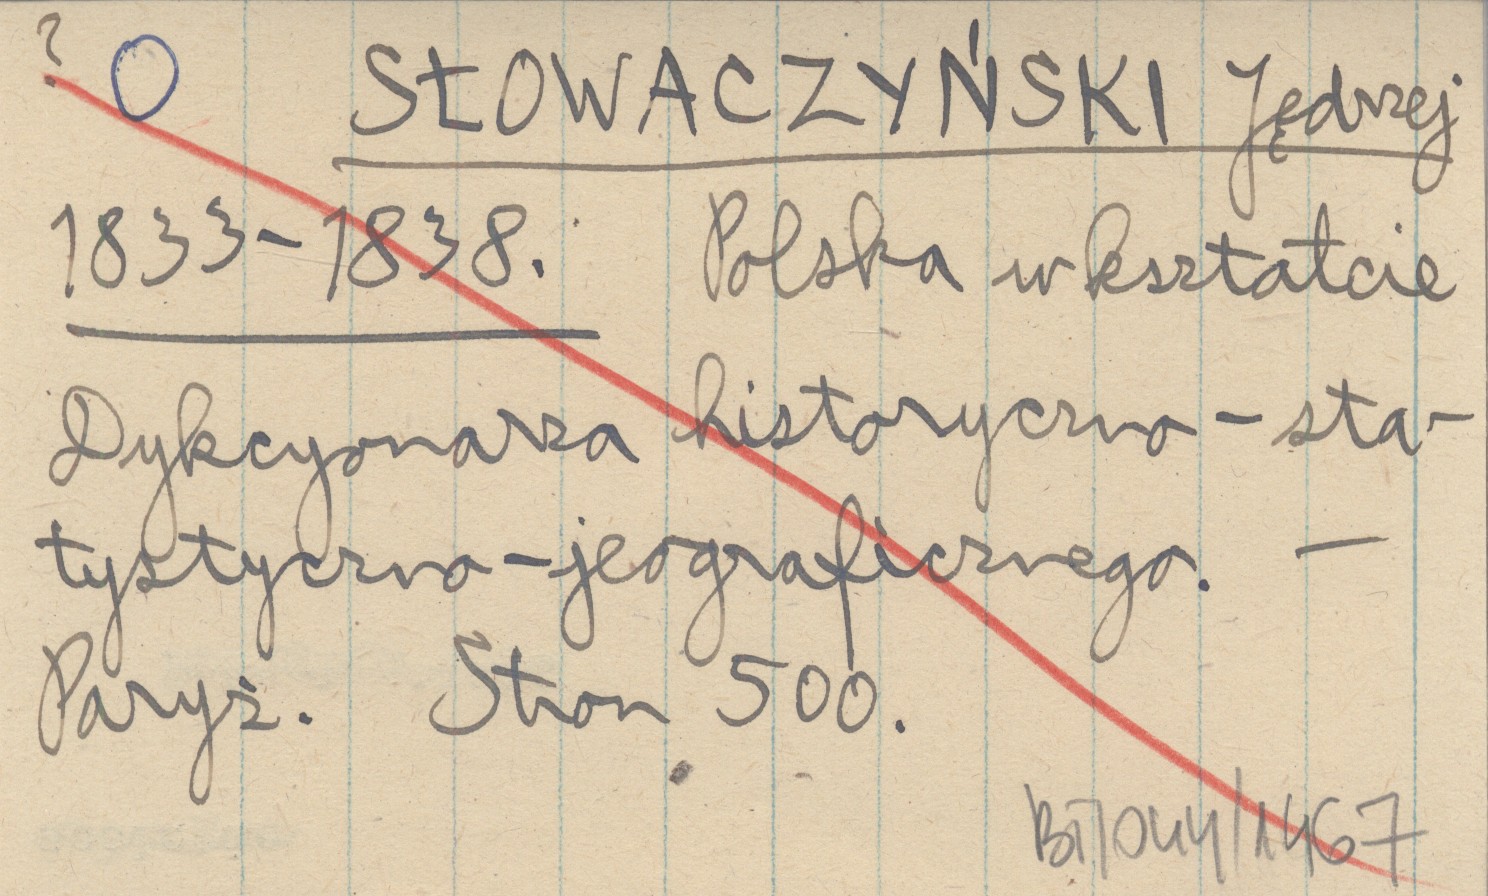 ? O SŁOWACZYŃSKI Jędrzej
1833-1838. Polska w kształcie
Dykcyonarza historyczno-sta-
tystyczno-jeograficznego. —
Paryż. Stron 500.